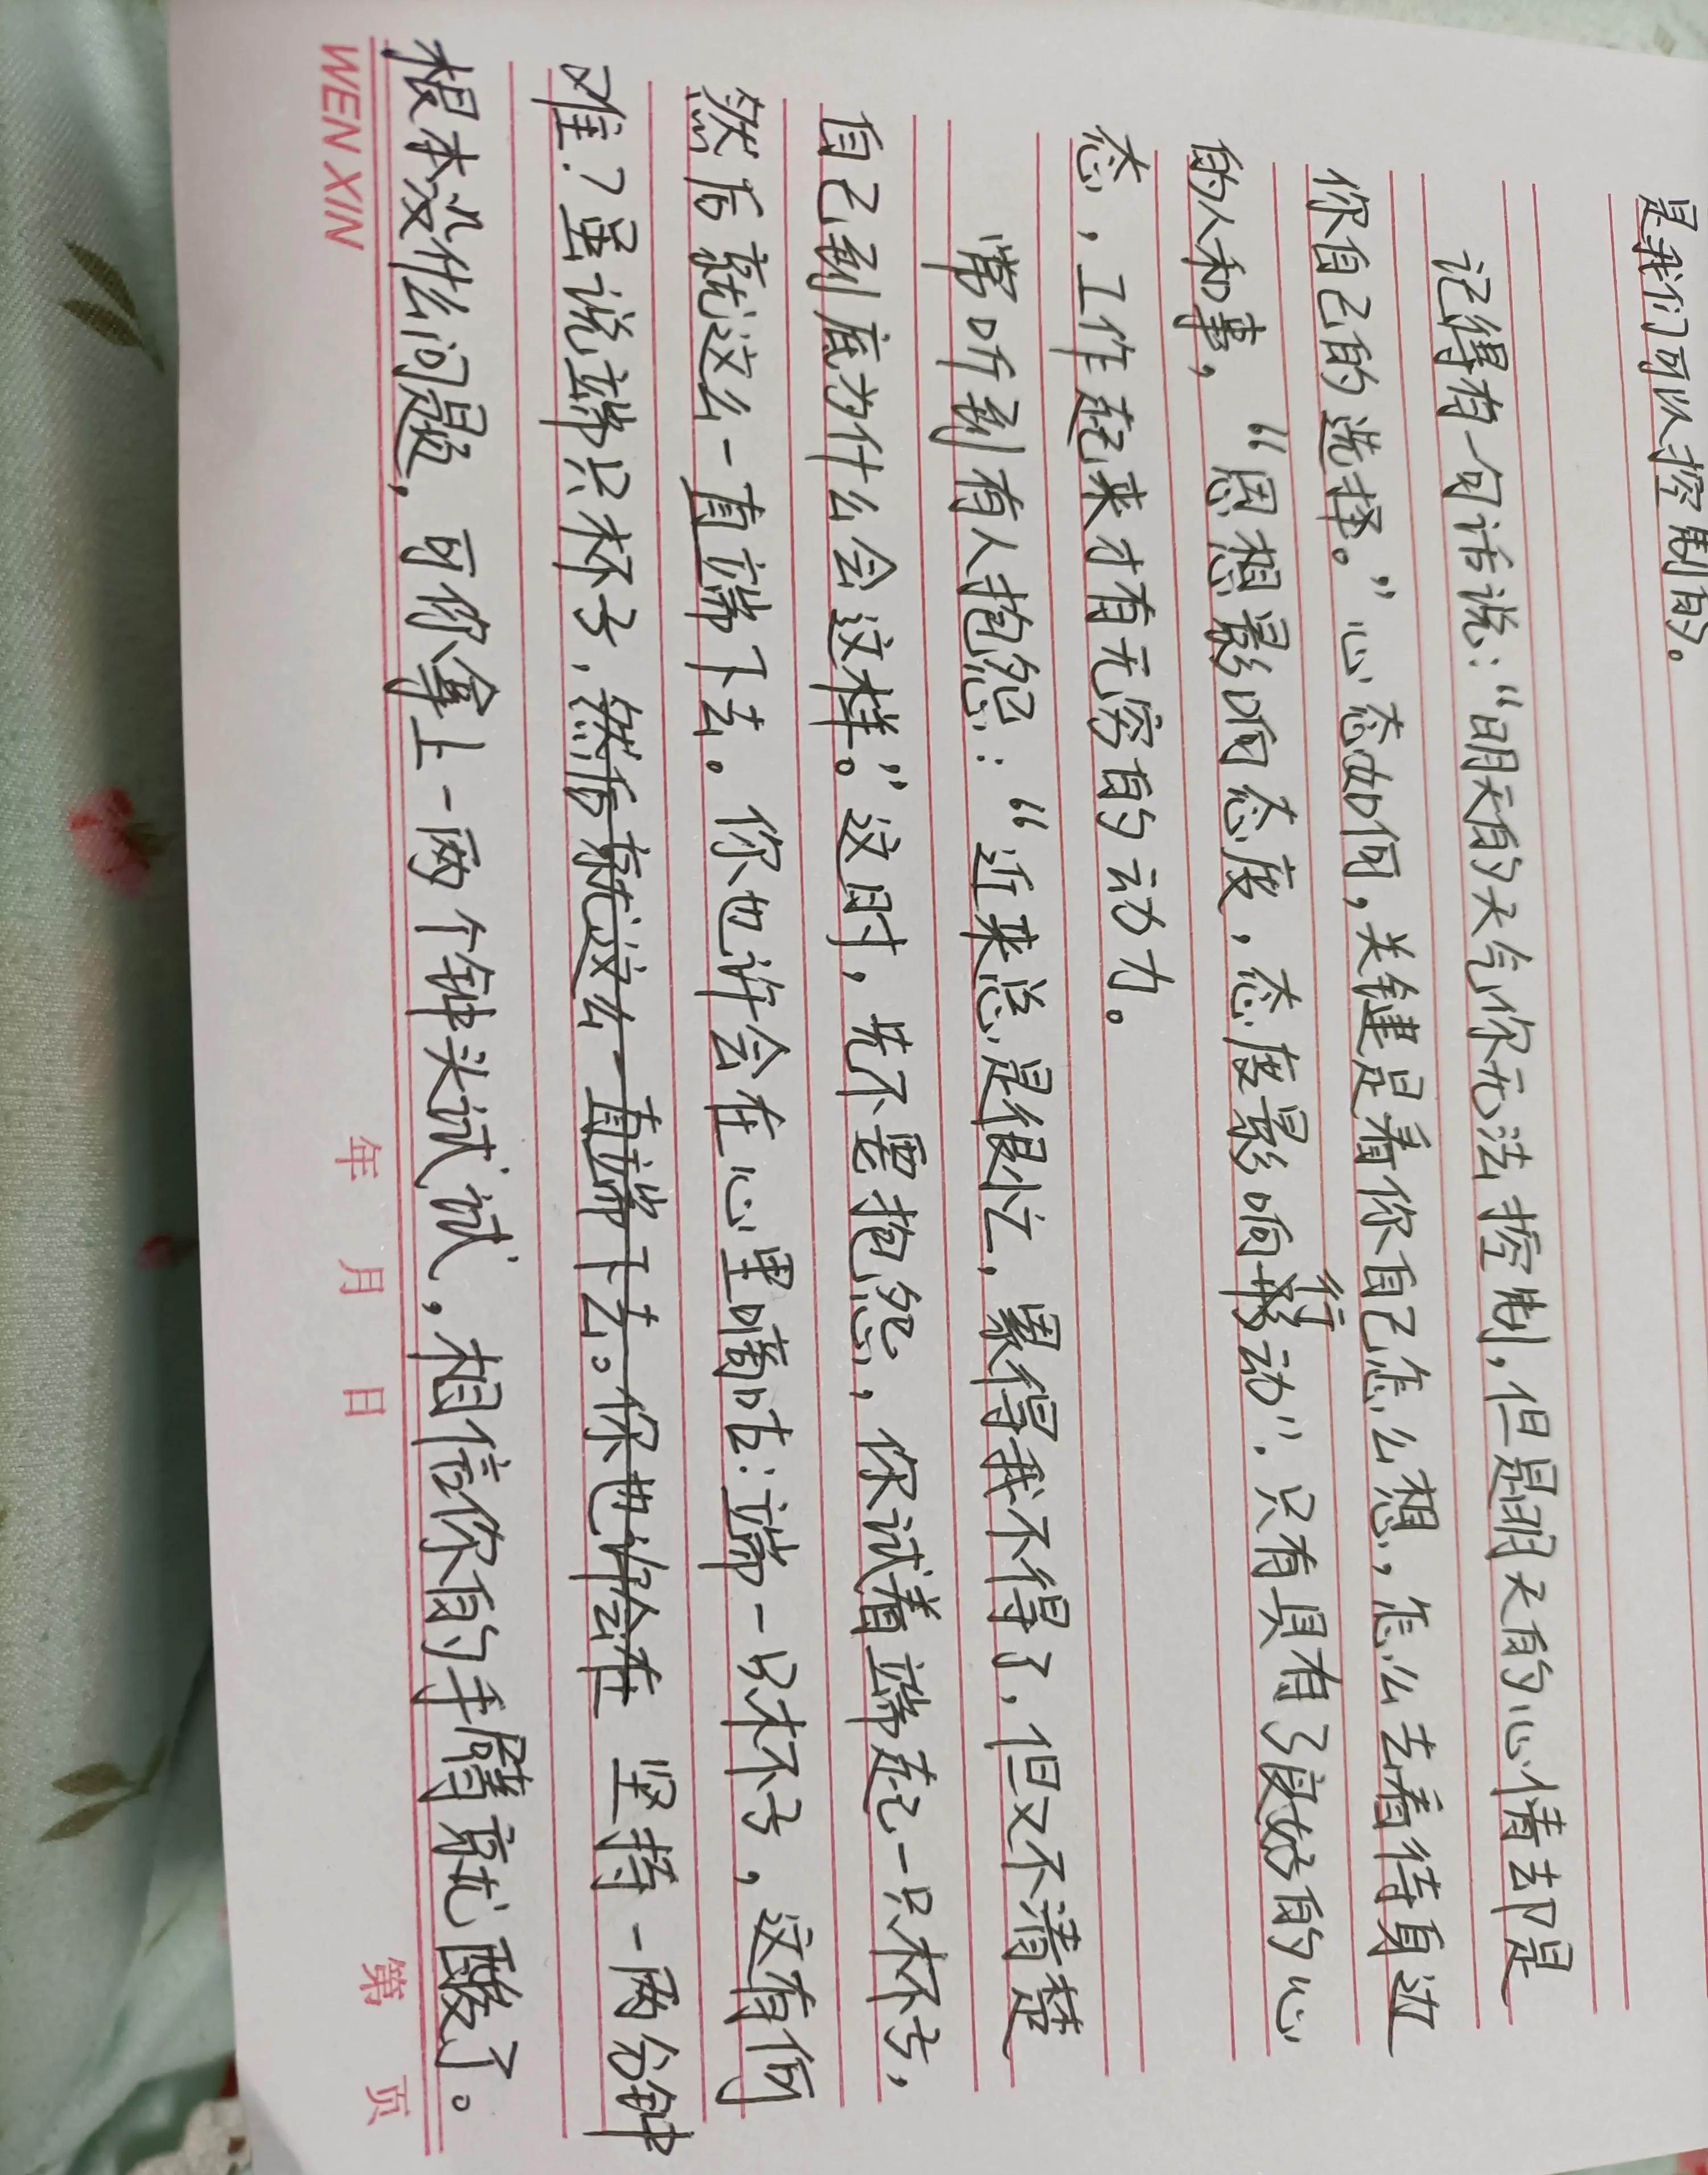 是我们可以控制的。
记得有一句话说：“明天的天气你无法控制，但是明天的心情却是
你自己的选择。”心态如何，关键是看你自己怎么想，怎么去看待身边
的人和事，“思想影响态度，态度影响行动”．只有具有了良好的心
态，工作起来才有无穷的动力。
常听到有人抱怨：“近来总是很忙，累得我不得了，但又不清楚
自己到底为什么会这样。”这时，先不要抱怨，你试着端起一只杯子，
然后就这么一直端下去。你也许会在心里嘀咕：端一只杯子，这有何
难？虽说端只杯子，然后就这么一直端下去。你也许会在 坚持一两分钟
根本没什么问题，可你拿上一两个钟头试试，相信你的手臂就酸了。
WEN XIN 年 月 日 第 页